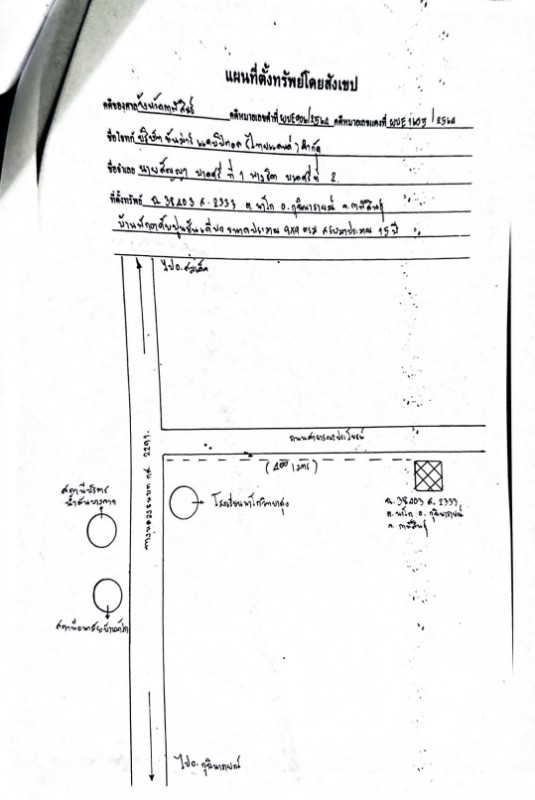 แผนที่ตั้งทรัพย์โดยสังเขป
คดีของศาลจังหวัดกาฬสินธุ์ คดีหมายเลขดำที่ ผบE906/2564 คดีหมายเลขแดงที่ ผบE1405/2564
ชื่อโจทก์ บริษัท ยันม่าร์ แคปปิตอล (ไทยแลนด์) จำกัด
ชื่อจำเลย นายสัญญา ที่ 1 ที่ 2
ที่ตั้งทรัพย์ ฉ. 38403 ส. 2333 ต. นาโก อ. กุฉินารายณ์ จ. กาฬสินธุ์
บ้านพักอาศัยปูนชั้นเดียว ขนาดประมาณ 9x9 ประมาณ 15 ปี
ไป อ.
ถนนสาธารณประโยชน์
(400 เมตร)
ทางหลวงชนบท กส. 2291
สถานีบริการ
โรงเรียนนาโกวิทยาสูง
ฉ. 38403 ส. 2333
ต. นาโก อ. กุฉินารายณ์
จ. กาฬสินธุ์
สถานีอนามัยบ้านนาโก
ไป อ. กุฉินารายณ์